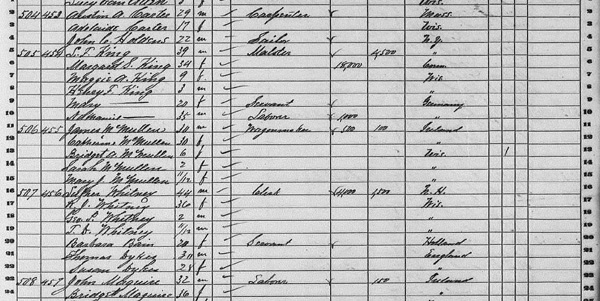 504 453 Austin A. Carter 29 m Carpenter Mass
Adelaide Carter 17 f Wis.
John C. 22 m Sailor N.Y.
5 505 454 S. T. King 39 m Malster 4,500 "
6 Margaret E. King 34 f 18,000 Conn
7 Maggie A. King 9 f Wis.
8 F. King 3 m "
9 Mary — 20 f Servant Germany
10 — 35 m Labour 1,000 "
11 506 455 James McMullen 30 m Wagonmaker 500 100 Ireland
12 Catherine McMullen 30 f "
13 Bridget A. McMullen 6 f Wis. 1
14 Sarah McMullen 2 f "
15 Mary J. McMullen 11/12 f "
16 507 456 Whitney 44 m Clerk 1,500 N.H.
17 R. J. Whitney 36 f Wis.
18 Geo. S. Whitney 2 m "
19 T. D. Whitney /12 m "
20 Barbara Bain 20 f Servant Holland
Thomas Dykes m England
22 Susan Dykes 28 f "
23 508 457 John Maguire 32 m Labour 150 Ireland
Bridget Maguire 36 f "